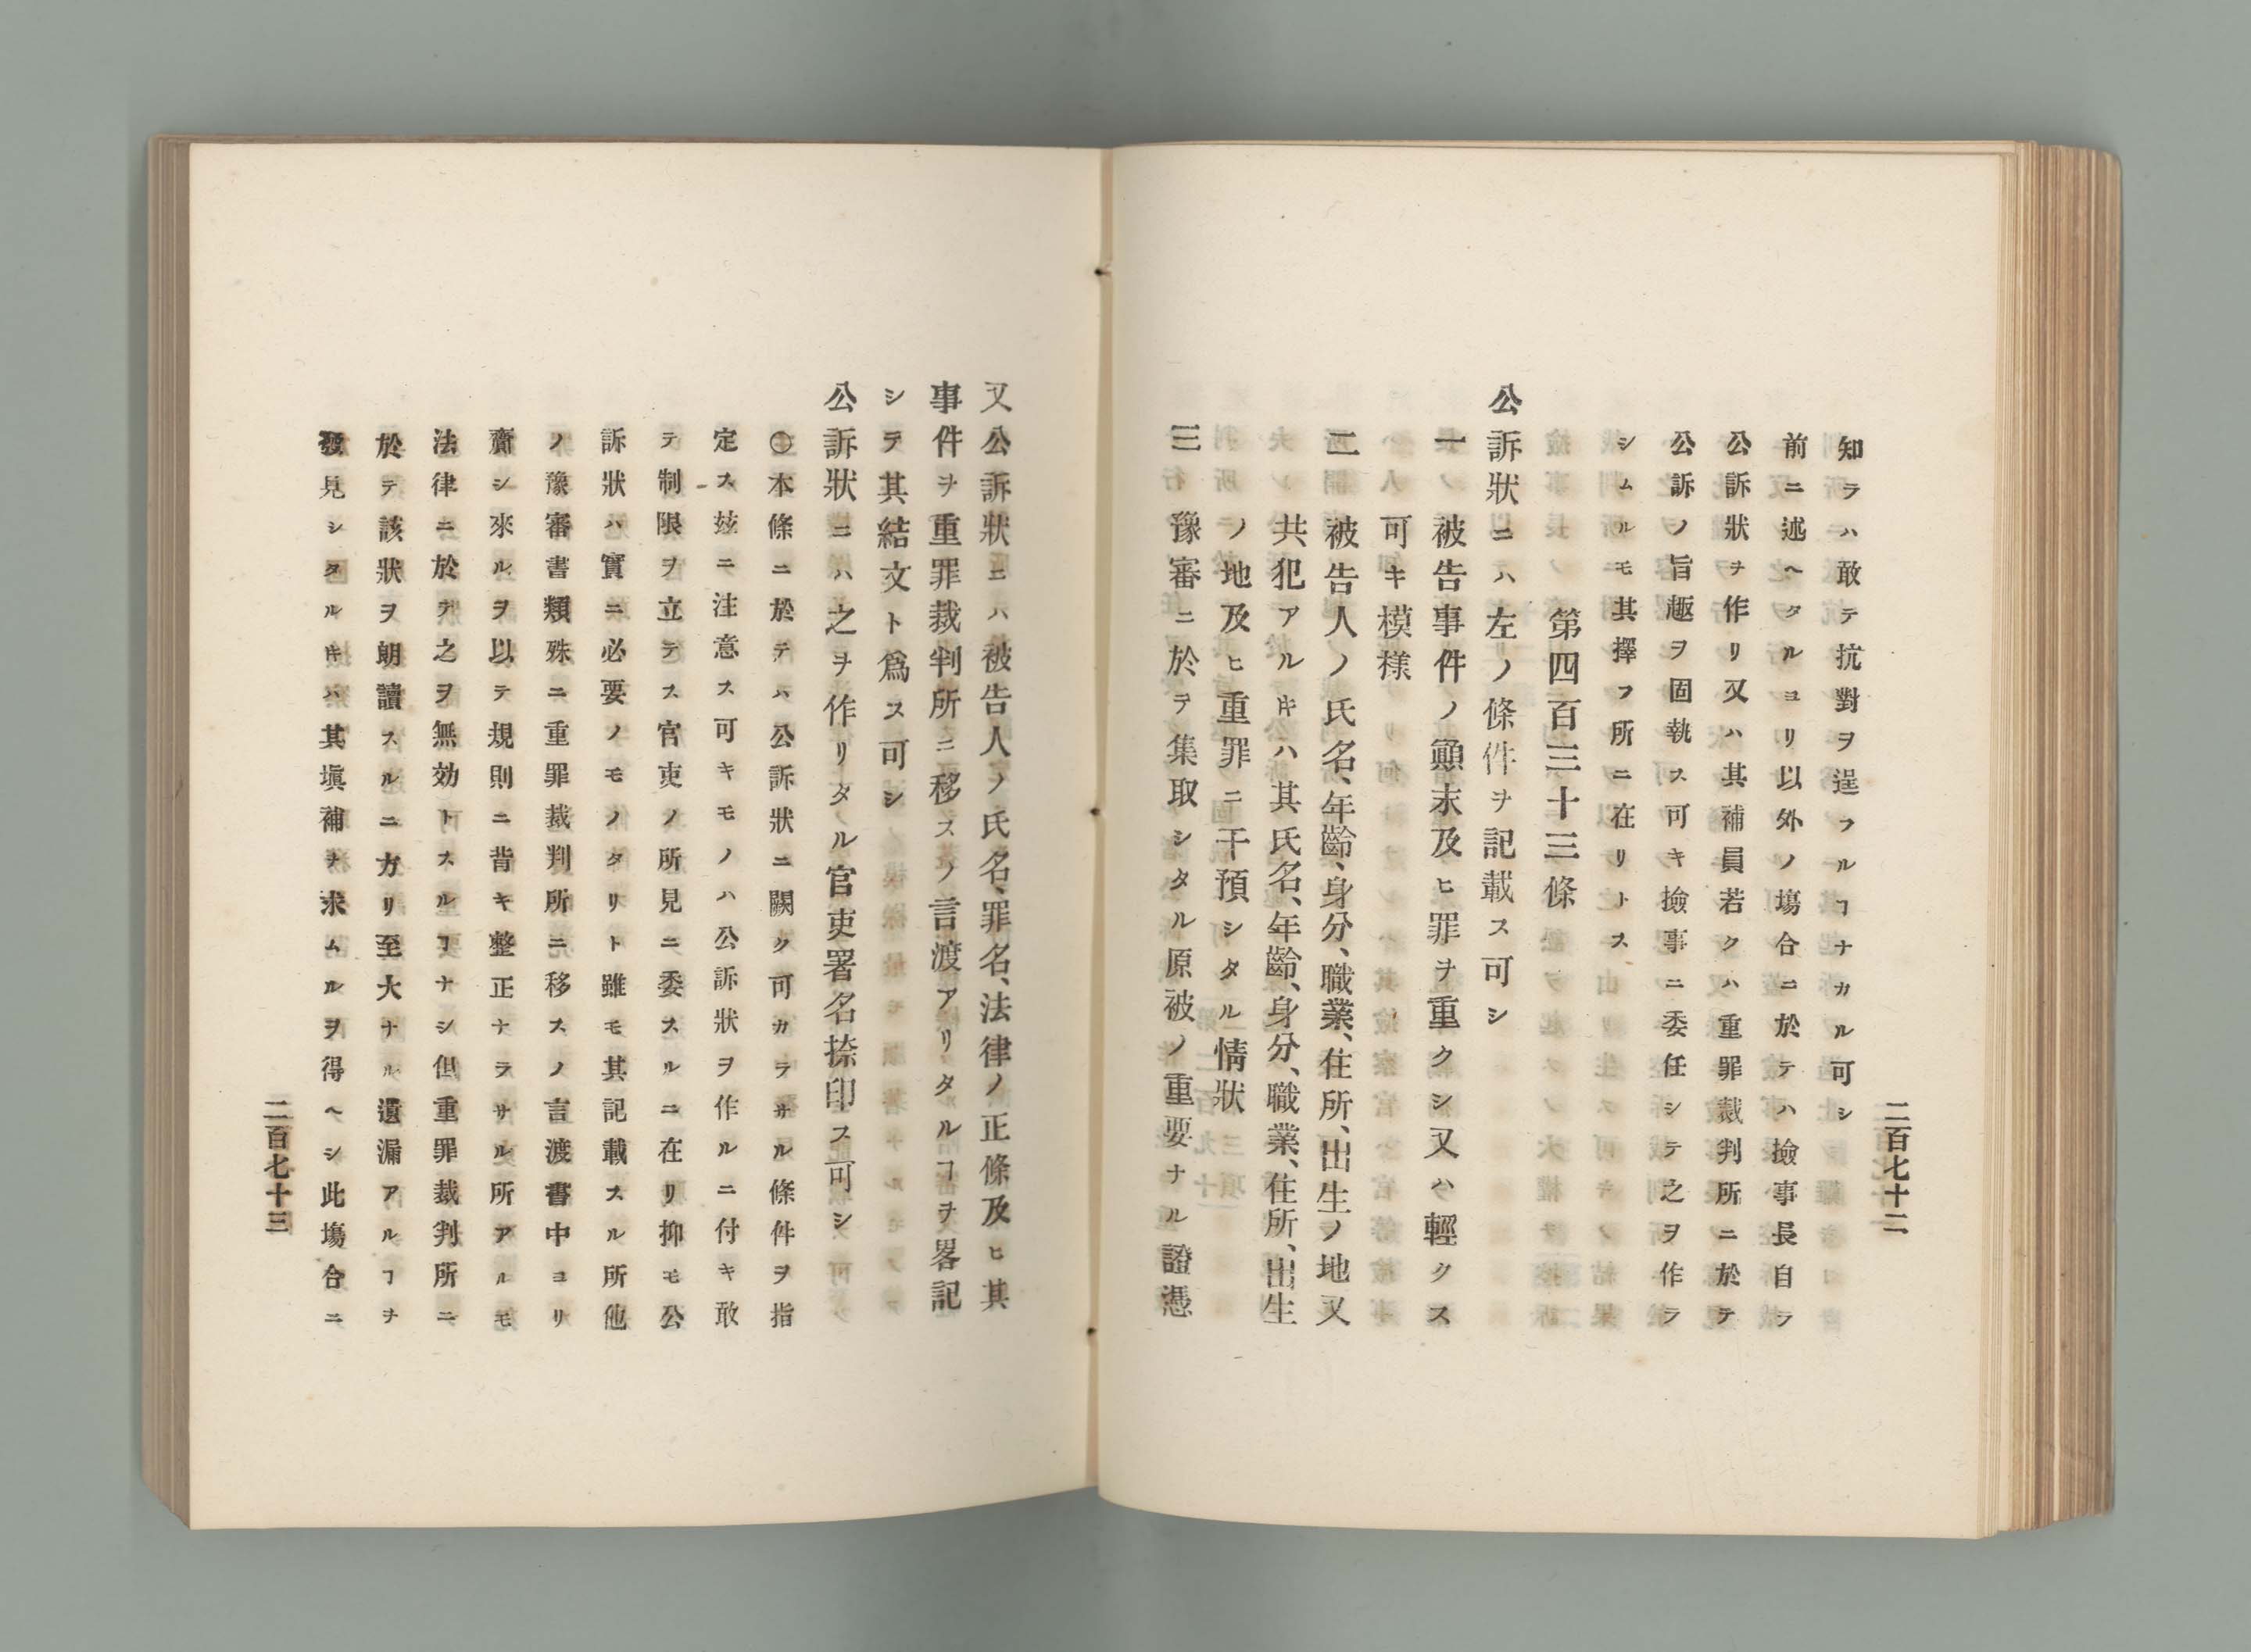 二百七十二
知ラハ敢テ抗對ヲ逞フルヿナカル可シ
前ニ述ヘタルヨリ以外ノ塲合ニ於テハ撿事長自ラ
公訴狀ヲ作リ又ハ其補員若クハ重罪裁判所ニ於テ
公訴ノ旨趣ヲ固執ス可キ撿事ニ委任シテ之ヲ作ラ
シムルモ其擇フ所ニ在リトス
第四百三十三條
公訴狀ニハ左ノ條件ヲ記載ス可シ
一 被告事件ノ顚末及ヒ罪ヲ重クシ又ハ輕クス
可キ模樣
二 被告人ノ氏名、年齡、身分、職業、住所、出生ノ地又
共犯アルトキハ其氏名、年齡、身分、職業、住所、出生
ノ地及ヒ重罪ニ干預シタル情狀
三 豫審ニ於テ集取シタル原被ノ重要ナル證憑
又公訴狀ニハ被告人ノ氏名、罪名、法律ノ正條及ヒ其
事件ヲ重罪裁判所ニ移スノ言渡アリタルヿヲ畧記
シテ其結文ト爲ス可シ
公訴狀ニハ之ヲ作リタル官吏署名捺印ス可シ
〇本條ニ於テハ公訴狀ニ闕ク可カラサル條件ヲ指
定ス玆ニ注意ス可キモノハ公訴狀ヲ作ルニ付キ敢
テ制限ヲ立テス官吏ノ所見ニ委スルニ在リ抑モ公
訴狀ハ實ニ必要ノモノタリト雖モ其記載スル所他
ノ豫審書類殊ニ重罪裁判所ニ移スノ言渡書中ヨリ
齎シ來ルヲ以テ規則ニ背キ整正ナラサル所アルモ
法律ニ於テ之ヲ無効トスルヿナシ但重罪裁判所ニ
於テ該狀ヲ朗讀スルニ方リ至大ナル遺漏アルヿヲ
發見シタルトキハ其塡補ヲ求ムルヲ得ヘシ此塲合ニ
二百七十三